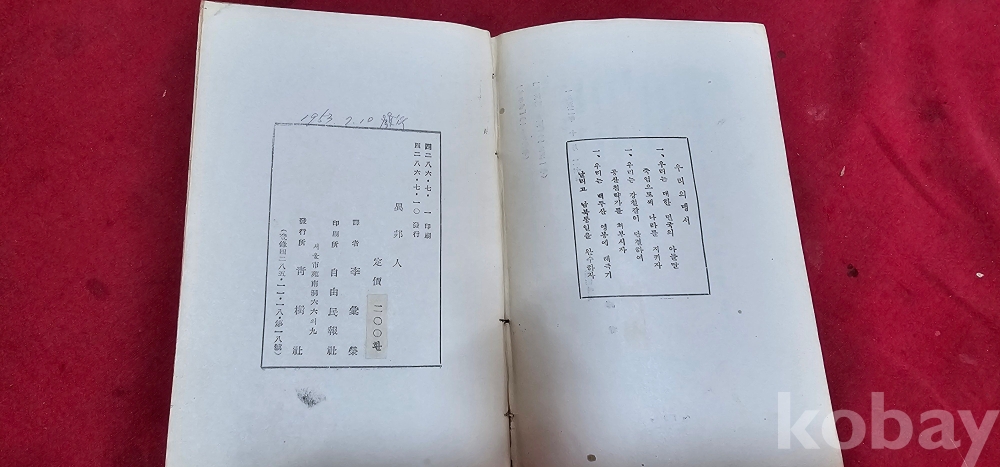 1953 7.10 發行
四二八六·七· 一 印刷
四二八六·七·一〇 發行
異邦人
定價 二〇〇환
譯者 李彙榮
印刷所 自由民報社
發行所 青樹社
우리의 맹서
一、우리는 대한 민국의 아들딸
죽엄으로써 나라를 지키자
一、우리는 강철같이 단결하여
공산침략자를 쳐부시자
一、우리는 백두산 영봉에 태극기
날리고 남북통일을 완수하자
kobay